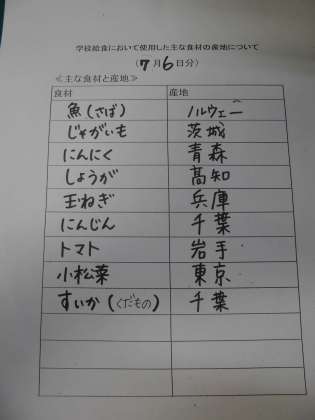 学校給食において使用した主な食材の産地について
(7月6日分)
≪主な食材と産地≫
食材 産地
魚(さば) ノルウェー
じゃがいも 茨城
にんにく 青森
しょうが 高知
玉ねぎ 兵庫
にんじん 千葉
トマト 岩手
小松菜 東京
すいか(くだもの) 千葉